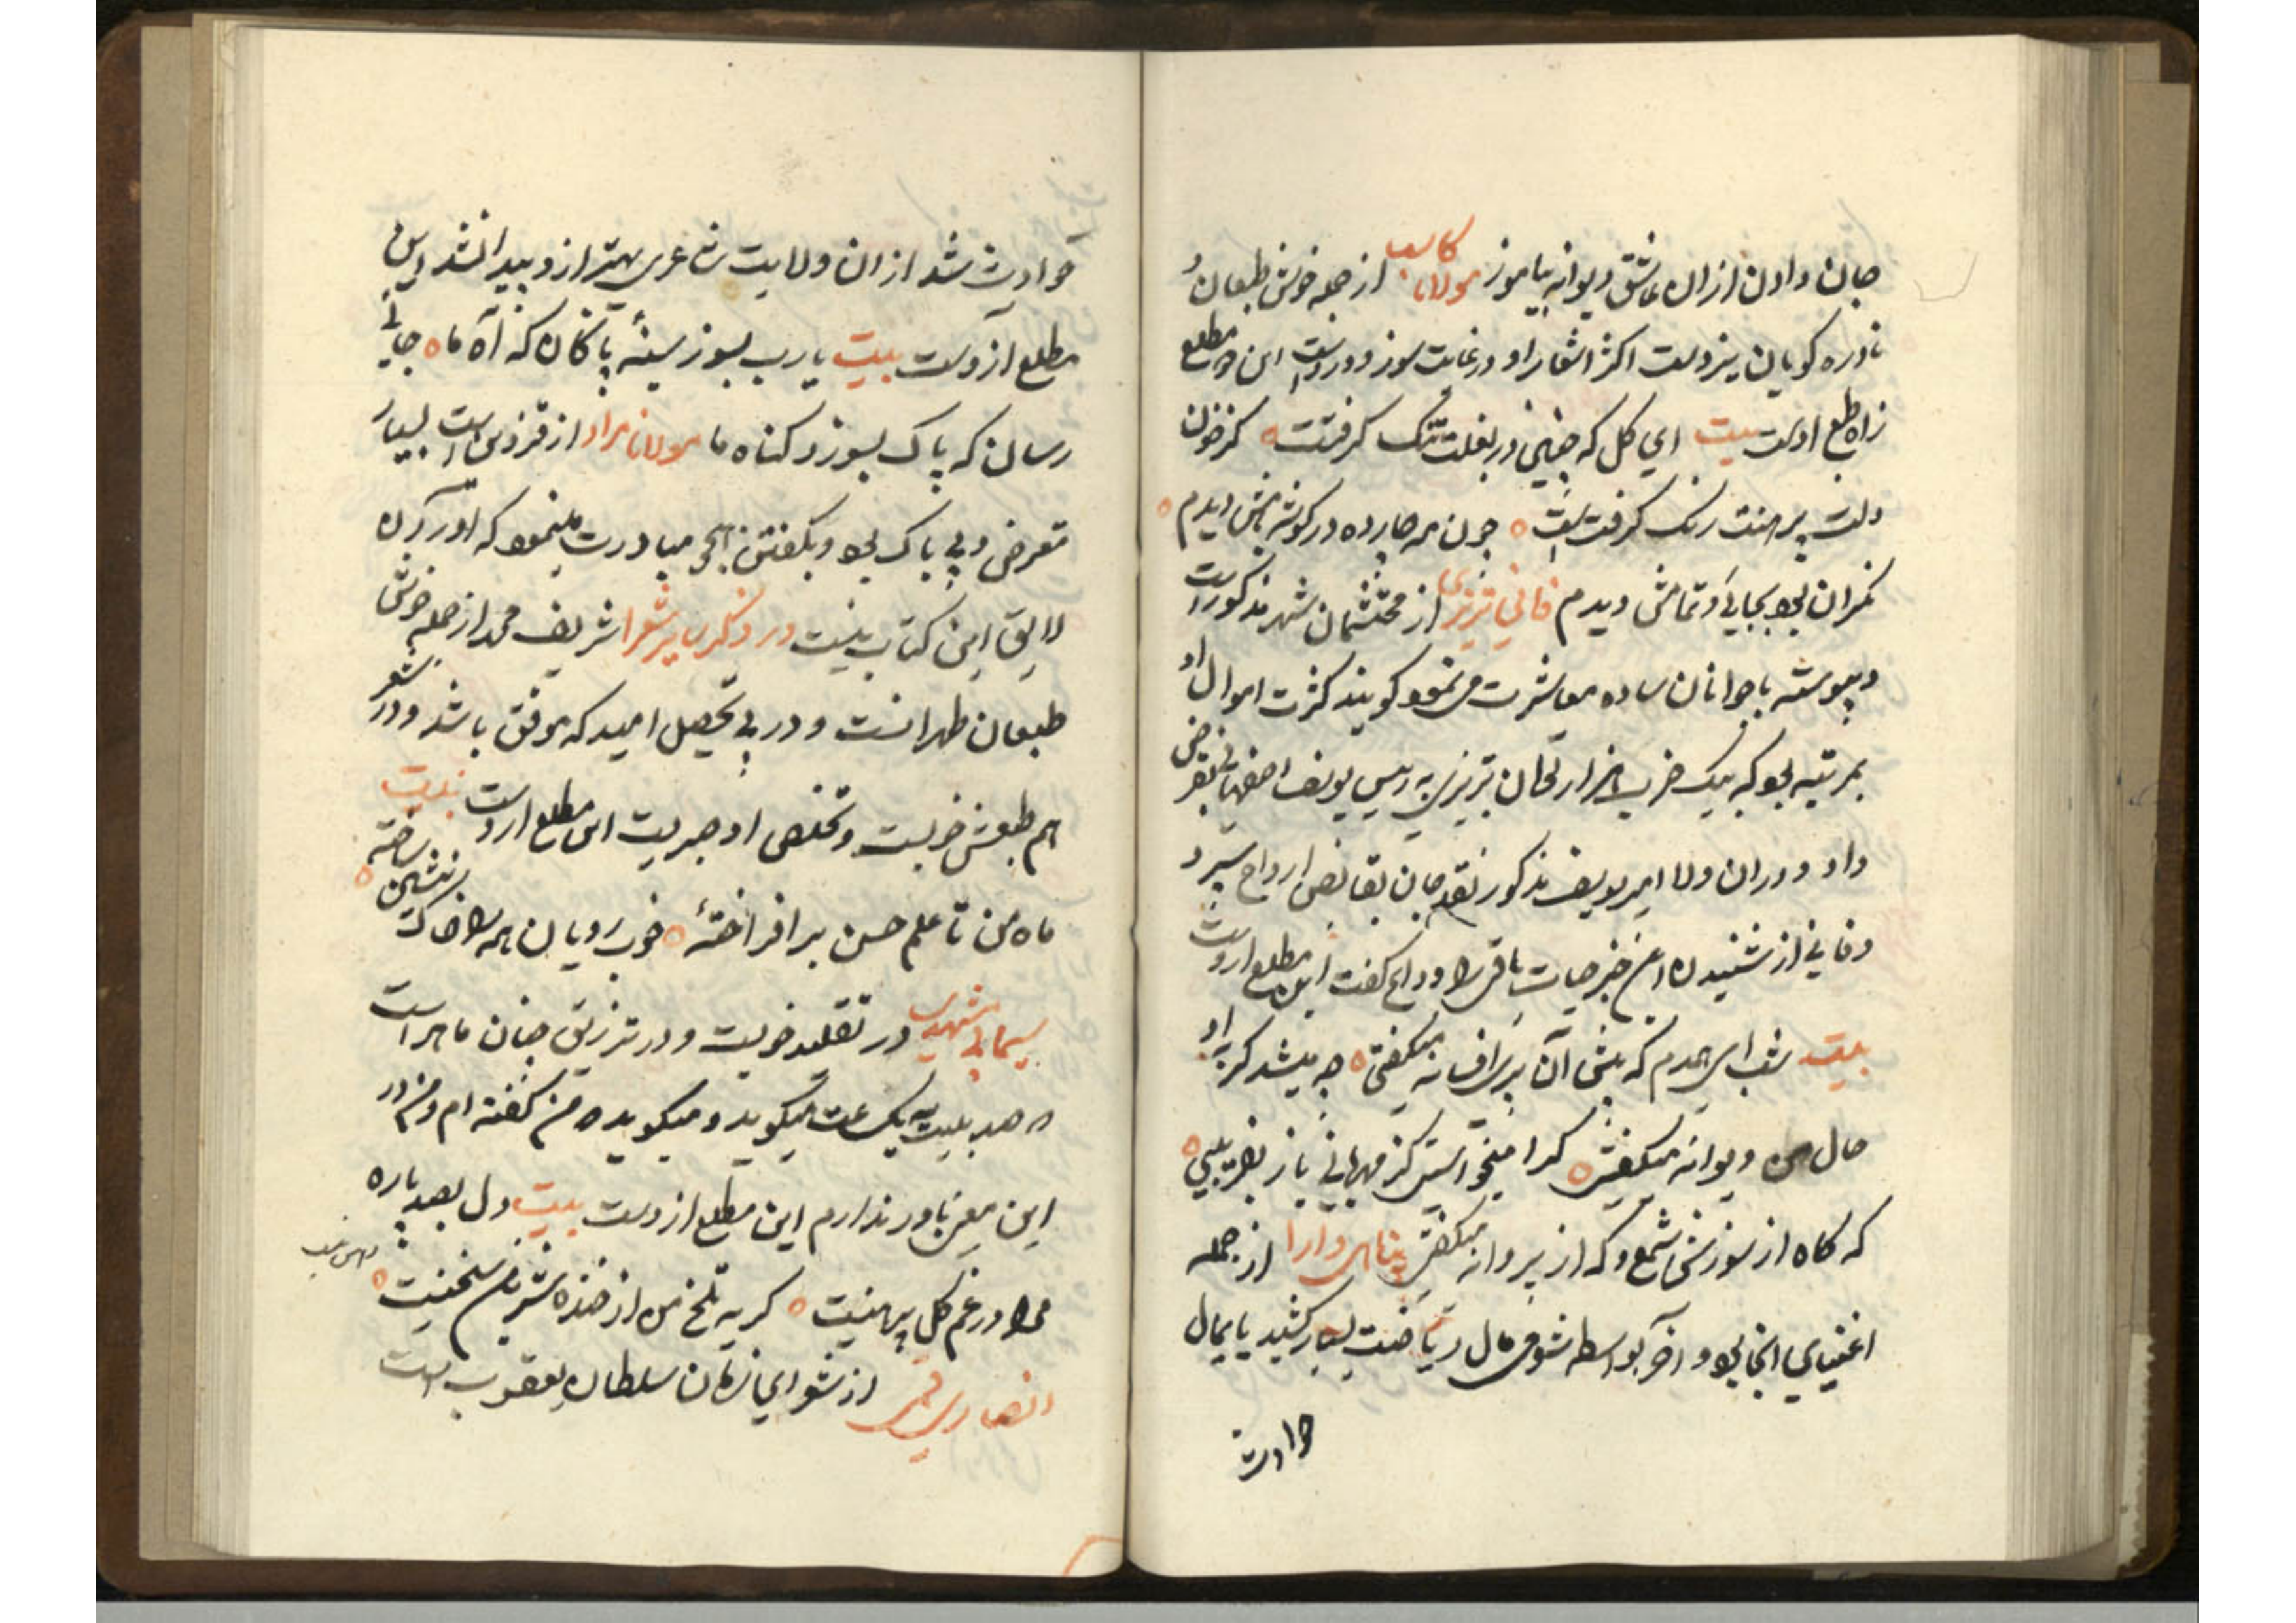 جان دادن ازان عاشق دیوانه بیاموز مولانا کاسب از جمله خوش طبعان و
نادره کویان تبریزست اکثر اشعار او در غایت سوز و دردست این مطلع
زاده طبع اوست بیت ای کل که چنین در بغلت تنک کرفتست ه کز خون
دلت پیرهنت رنک کرفتست ه چون مه چارده در کوشه بامش دیدم ه
نکران بود بجایی و تماشی دیدم فانی تبریزی از محتشمان شهر مذکورست
و پیوسته با جوانان ساده معاشرت می نمود کویند کثرت اموال او
بمرتبه بود که بیک ضرب هزار تومان تبریزی به رییس یوسف اصفهانی بقرض
داد و دران ولا امیر یوسف مذکور نقد جان بقابض ارواح سپرد
و فانی از شنیدن این خبر حیات باقی را وداع کفت این مطلع ازوست
بیت شب ای همدم که پیش آن پری افسانه میکفتی ه چه میشد کر باو
حال من دیوانه میکفتی ه کرا میخواستی کز مهربانی باز بفریبی ه
که کاه از سوزش شمع و که از پروانه میکفتی پناهی دارا از جمله
اغنیای انجا بود و آخر بواسطه شومی مال ریاضت بسیار کشید پایمال
حوادث
حوادث شد ازان ولایت شاعری بهتر ازو پیدا نشد این
مطلع ازوست بیت یارب بسوز سینهٔ پاکان که آه ما ه جایی
رسان که پاک بسوزد کناه ما مولانا مراد از قزوین است بسیار
متعرض و بی باک بود و بکفتن هجو مبادرت مینمود که اوردن آن
لایق این کتاب نیست در ذکر سایر شعرا شریف محمد از جمله خوش
طبعان طهرانست و در پی تحصیل امید که موفق باشد و در شعر
هم طبعش خوبست و تخلص او هجریست این مطلع ازوست بیت
ماه من تا علم حسن برافراختهٔ ه خوب رویان همه را خاک نشین ساخته ه
سیمابی مشهدی در تقلید خوبست و در تزریق چنان ماهر است
که صد بیت به یک ساعت میکوید و میکوید ه من کفته ام و من در
این معنی باور ندارم این مطلع ازوست بیت دل بصد پاره
مرا در غم کل پیرهنیست ه کریه تلخ من از خنده شیرین سخنیست ه
انصاری قمی از شعرای زمان سلطان یعقوب است